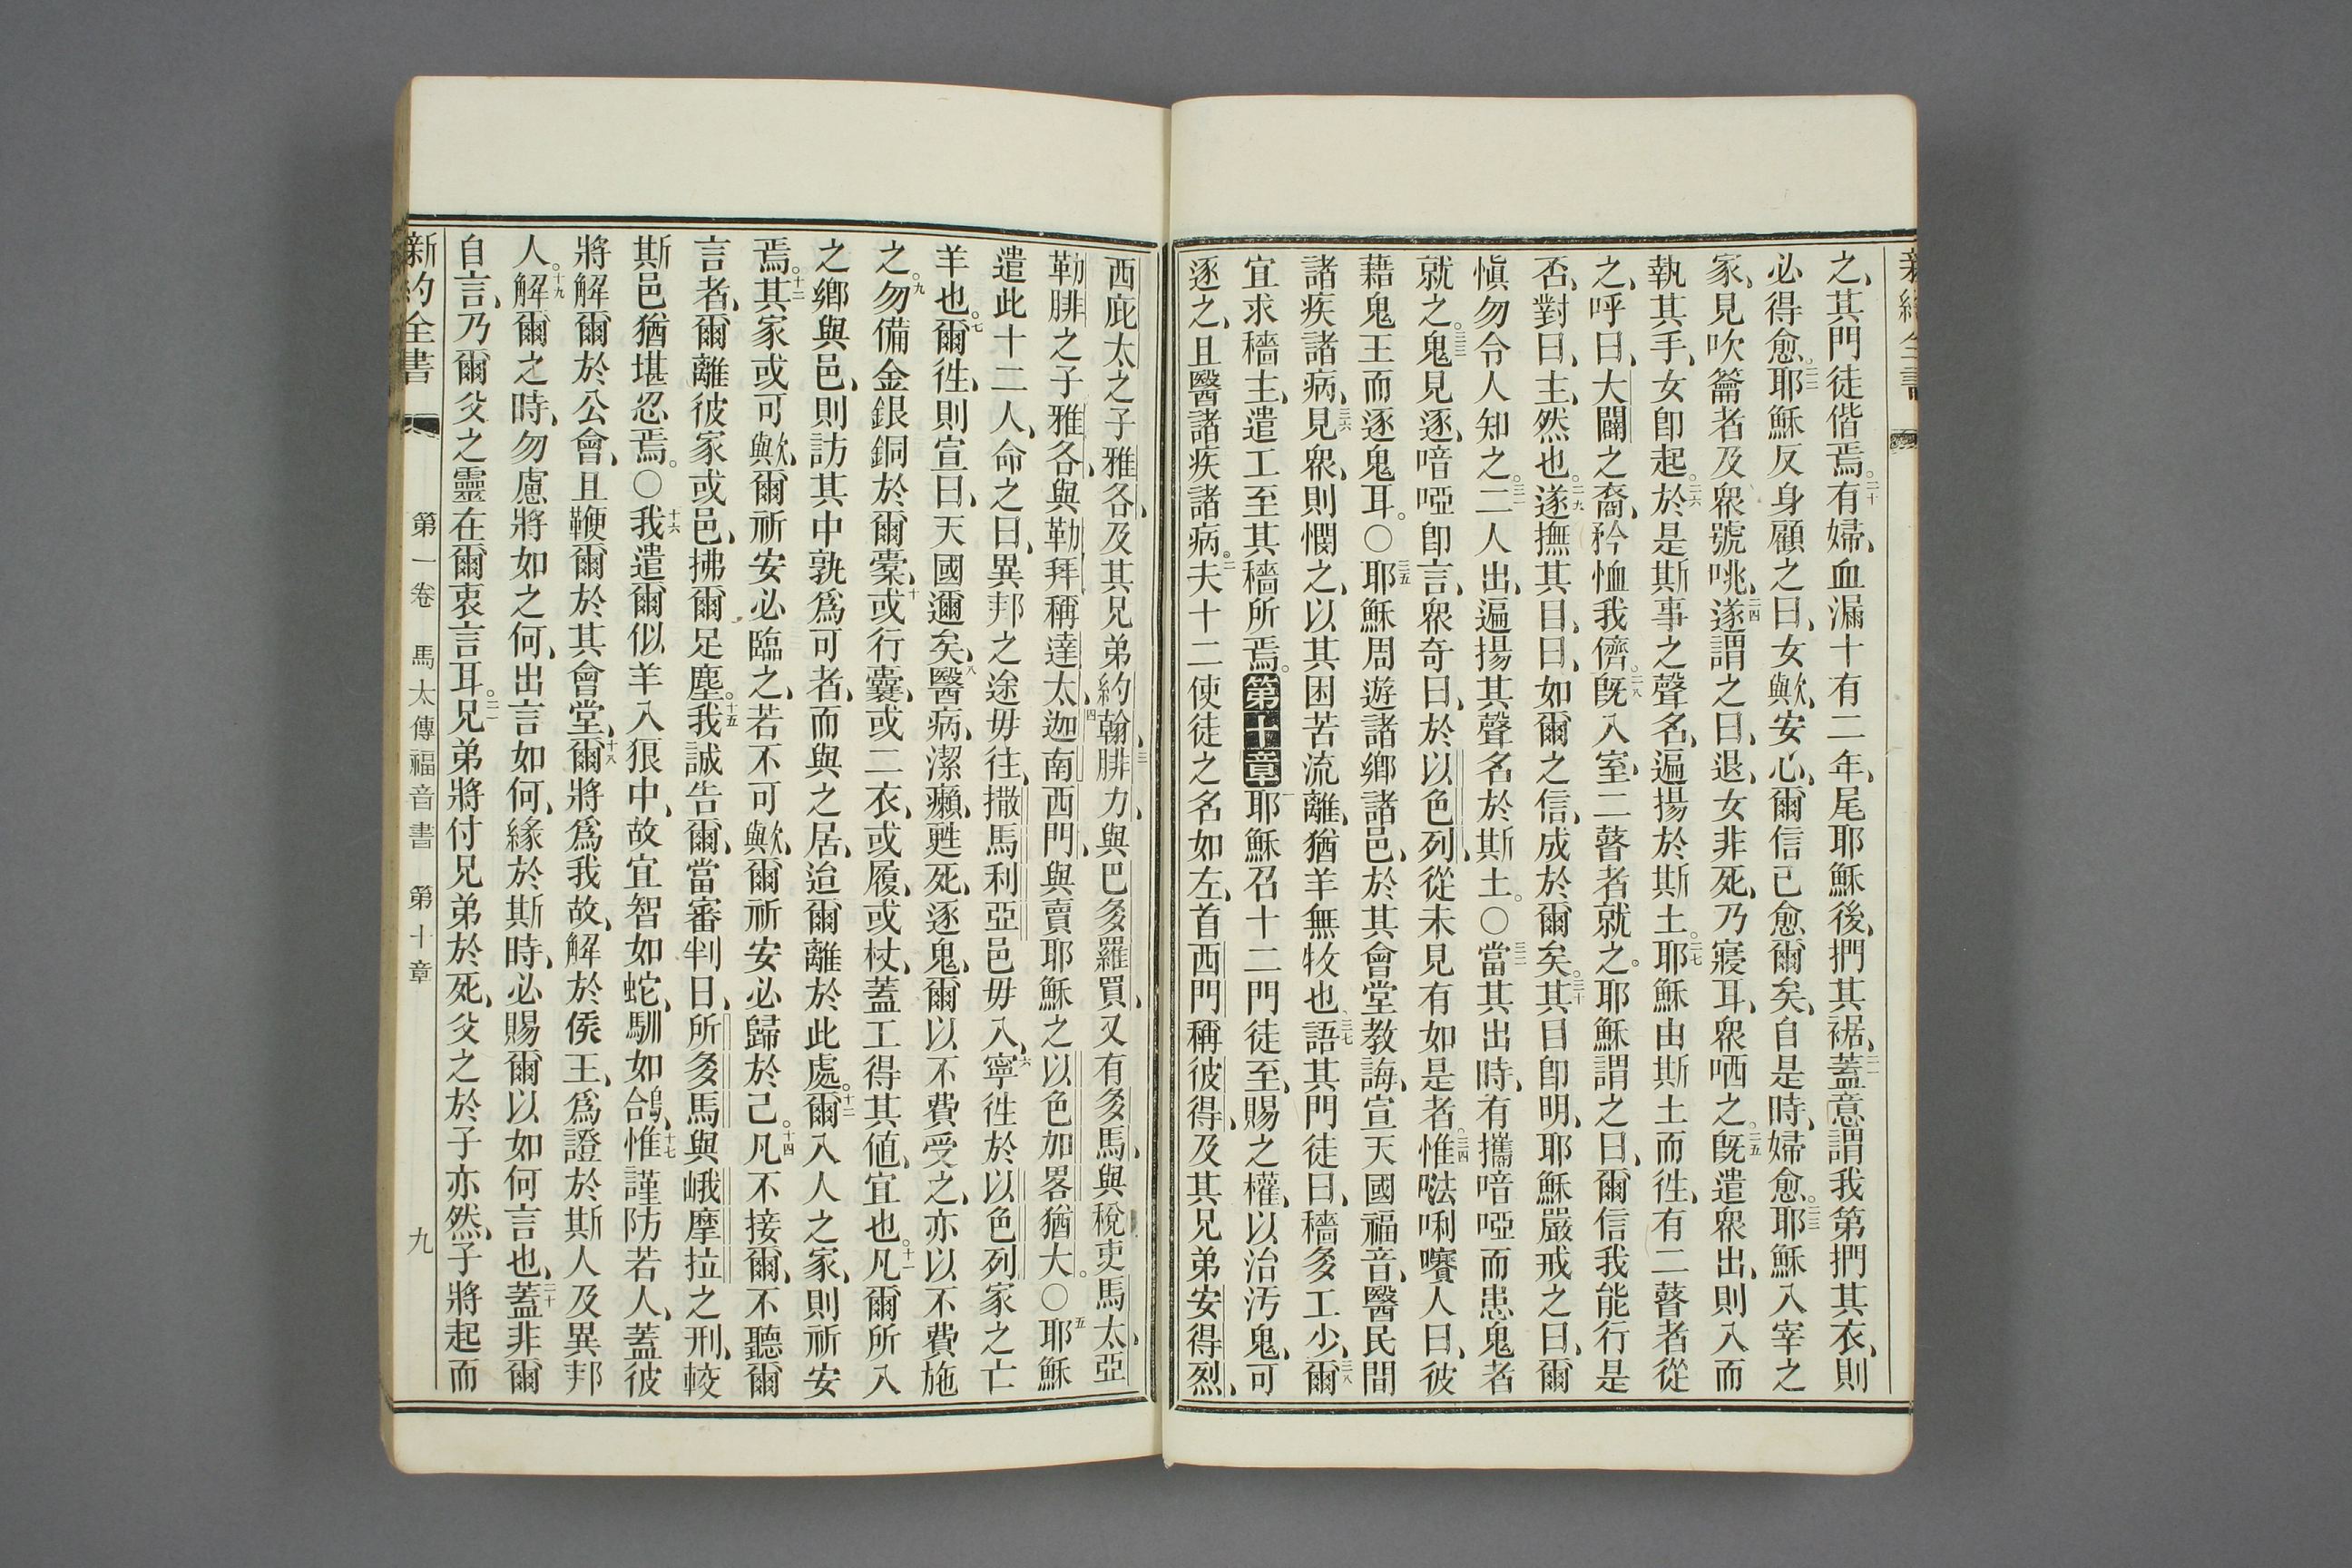 之、其門徒偕焉。二十有婦、血漏十有二年、尾耶穌後、捫其裾、二一蓋意謂我第捫其衣、則
必得愈。二二耶穌反身顧之曰、女歟、安心、爾信已愈爾矣、自是時、婦愈。二三耶穌入宰之
家、見吹籥者及衆號咷、二四遂謂之曰、退、女非死、乃寢耳、衆哂之。二五旣遣衆出、則入而
執其手、女卽起。二六於是斯事之聲名、遍揚於斯土。二七耶穌由斯土而徃、有二瞽者從
之、呼曰、大闢之裔、矜恤我儕。二八旣入室、二瞽者就之。耶穌謂之曰、爾信我能行是
否、對曰、主、然也。二九遂撫其目、曰、如爾之信、成於爾矣。三十其目卽明、耶穌嚴戒之曰、爾
愼勿令人知之。三一二人出、遍揚其聲名於斯土。○三二當其出時、有攜喑啞而患鬼者
就之。三三鬼見逐、喑啞卽言、衆奇曰、於以色列、從未見有如是者。三四惟㕸唎㘔人曰、彼
藉鬼王而逐鬼耳。○三五耶穌周遊諸鄉諸邑、於其會堂教誨、宣天國福音、醫民間
諸疾諸病、三六見衆、則憫之、以其困苦流離、猶羊無牧也、三七語其門徒曰、穡多工少、三八爾
宜求穡主、遣工至其穡所焉。第十章一耶穌召十二門徒至、賜之權、以治汚鬼、可
逐之、且醫諸疾諸病。二夫十二使徒之名如左、首西門稱彼得、及其兄弟安得烈、
西庇太之子雅各、及其兄弟約翰、三腓力、與巴多羅買、又有多馬、與稅吏馬太、亞
勒腓之子雅各、與勒拜稱達太、四迦南西門、與賣耶穌之以色加畧猶大。○五耶穌
遣此十二人、命之曰、異邦之途毋往、撒馬利亞邑毋入、六寧徃於以色列家之亡
羊也。七爾徃、則宣曰、天國邇矣、八醫病、潔癩、甦死、逐鬼、爾以不費受之、亦以不費施
之。九勿備金銀銅於爾橐、十或行囊、或二衣、或履、或杖、蓋工得其値、宜也。十一凡爾所入
之鄉與邑、則訪其中孰爲可者、而與之居、迨爾離於此處。十二爾入人之家、則祈安
焉。十三其家或可歟、爾祈安必臨之、若不可歟、爾祈安必歸於己。十四凡不接爾、不聽爾
言者、爾離彼家或邑、拂爾足塵。十五我誠告爾、當審判日、所多馬與峨摩拉之刑、較
斯邑猶堪忍焉。○十六我遣爾似羊入狼中、故宜智如蛇、馴如鴿、十七惟謹防若人、蓋彼
將解爾於公會、且鞭爾於其會堂、十八爾將爲我故、解於侯王、爲證於斯人及異邦
人。十九解爾之時、勿慮將如之何、出言如何、緣於斯時、必賜爾以如何言也、二十蓋非爾
自言、乃爾父之靈在爾衷言耳。二一兄弟將付兄弟於死、父之於子亦然、子將起而
新約全書 第一卷 馬太傳福音書 第十章 九